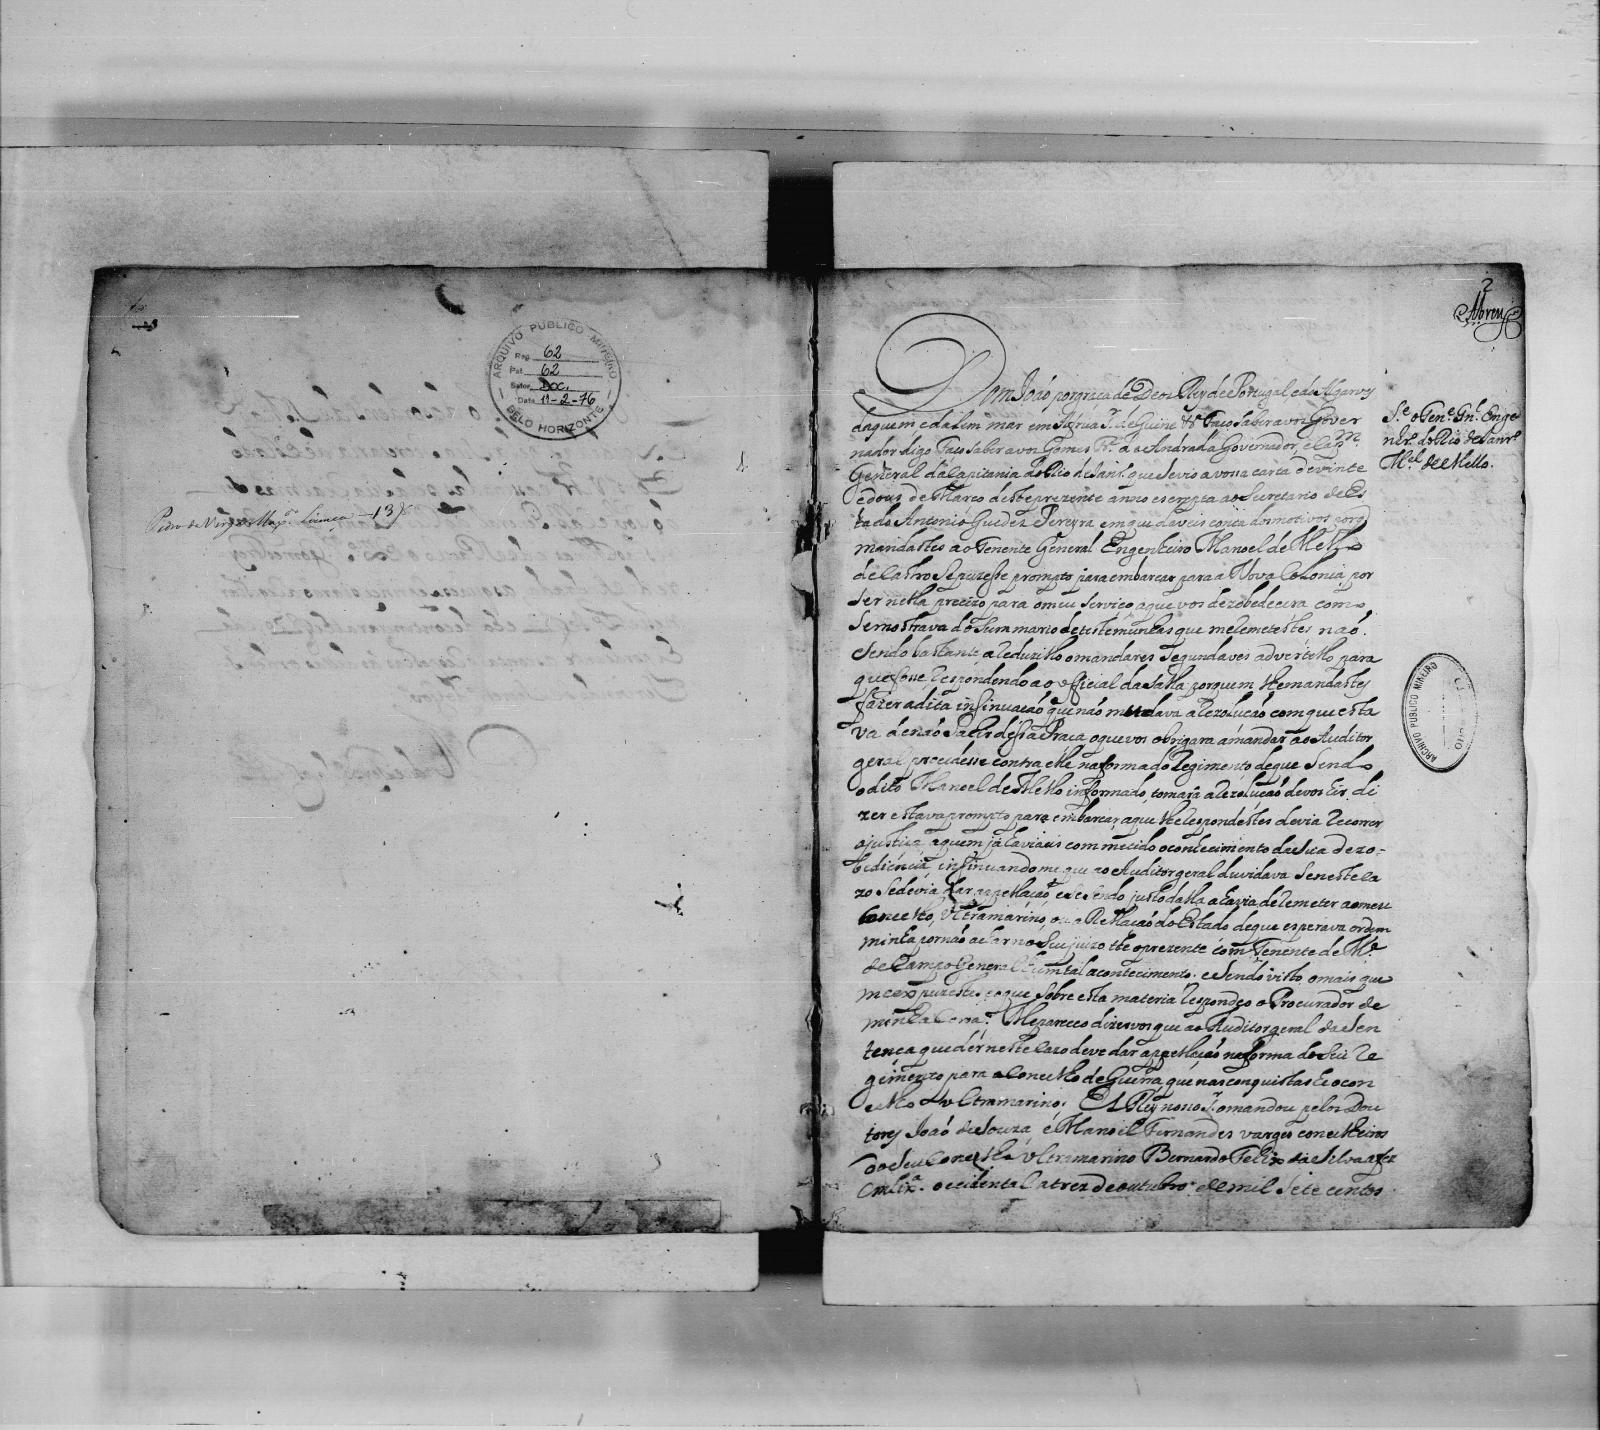 ARQUIVO PUBLICO MINEIRO
Reg. 62
Pat. 62
Setor DOC.
Data 11-2-76
BELO HORIZONTE
1
Pedro de
2
Abreu
Dom Joaó por graça de Deos Rey de Portugal e dos Algarves
daquem e dalem mar em Africa Sr. de Guine &ª Faço saber avos Gover
nador digo Faço saber avos Gomes Frº. de Andrada Governador, e Capm.
General da Capitania do Rio de Janrº. que se vio a vossa carta de vinte
edous de Março deste prezente anno escripta ao Secretario de Es
tado Antonio Guedez Pereyra em que daveis conta dos motivos porq
mandastes ao Tenente General Engenheiro Manoel de Mello
de Castro se puzesse prompto para embarcar para a Nova Colonia por
ser nella precizo para o meu serviço aque vos dezobedecera como
se mostrava do summario de testemunhas que me remetestes naó
sendo bastante a reduzillo o mandares segunda ves advertillo para
que fosse, respondendo ao official da Salla por quem lhe mandastes
fazer a dita insinuaçaó que naó mudava a rezoluçaó com que esta
va de naó sahir dessa Praça o que vos obrigara a mandar ao Auditor
geral procedesse contra elle na forma do Regimento de que sendo
o dito Manoel de Mello informado, tomara a rezoluçaó de vos hir di
zer estava prompto para embarcar, a que lhe respondestes devia recorrer
a justiça a quem já havieis commetido o conhecimento da sua dezo=
bediencia, insinuandome que ao Auditor geral duvidava se neste ca
zo se devia dar appellaçaó, e se sendo justo dalla a havia de remeter ao meu
Concelho Ultramarino, ou a Rellaçaó do Estado de que esperava ordem
minha por naó achar no seu juizo the o prezente com Tenente de Mº
de Campo General hum tal acontecimento. e sendo visto o mais que
me expuzestes, e o que sobre esta materia respondeo o Procurador de
minha Coroa. Me pareceo dizervos que ao Auditor geral da sen
tença que dér neste cazo deve dar appellaçaó na forma do seu Re
gimento para o Concelho de Guerra, que nas conquistas he o con
celho Ultramarino. El Rey nosso Sr. o mandou pelos Dou
tores Joaó de Souza e Manoel Fernandes Varges conselheiros
do seu Concelho Ultramarino Bernardo Felix da Silva a fez
em Lixª. occidental a trez de outubro de mil sete centos
Sᵉ o Tenᵉ. Gnˡ. Enge
nhrº. do Rio de Janrº
Mᵉˡ. de Mello.
ARCHIVO PUBLICO MINEIRO